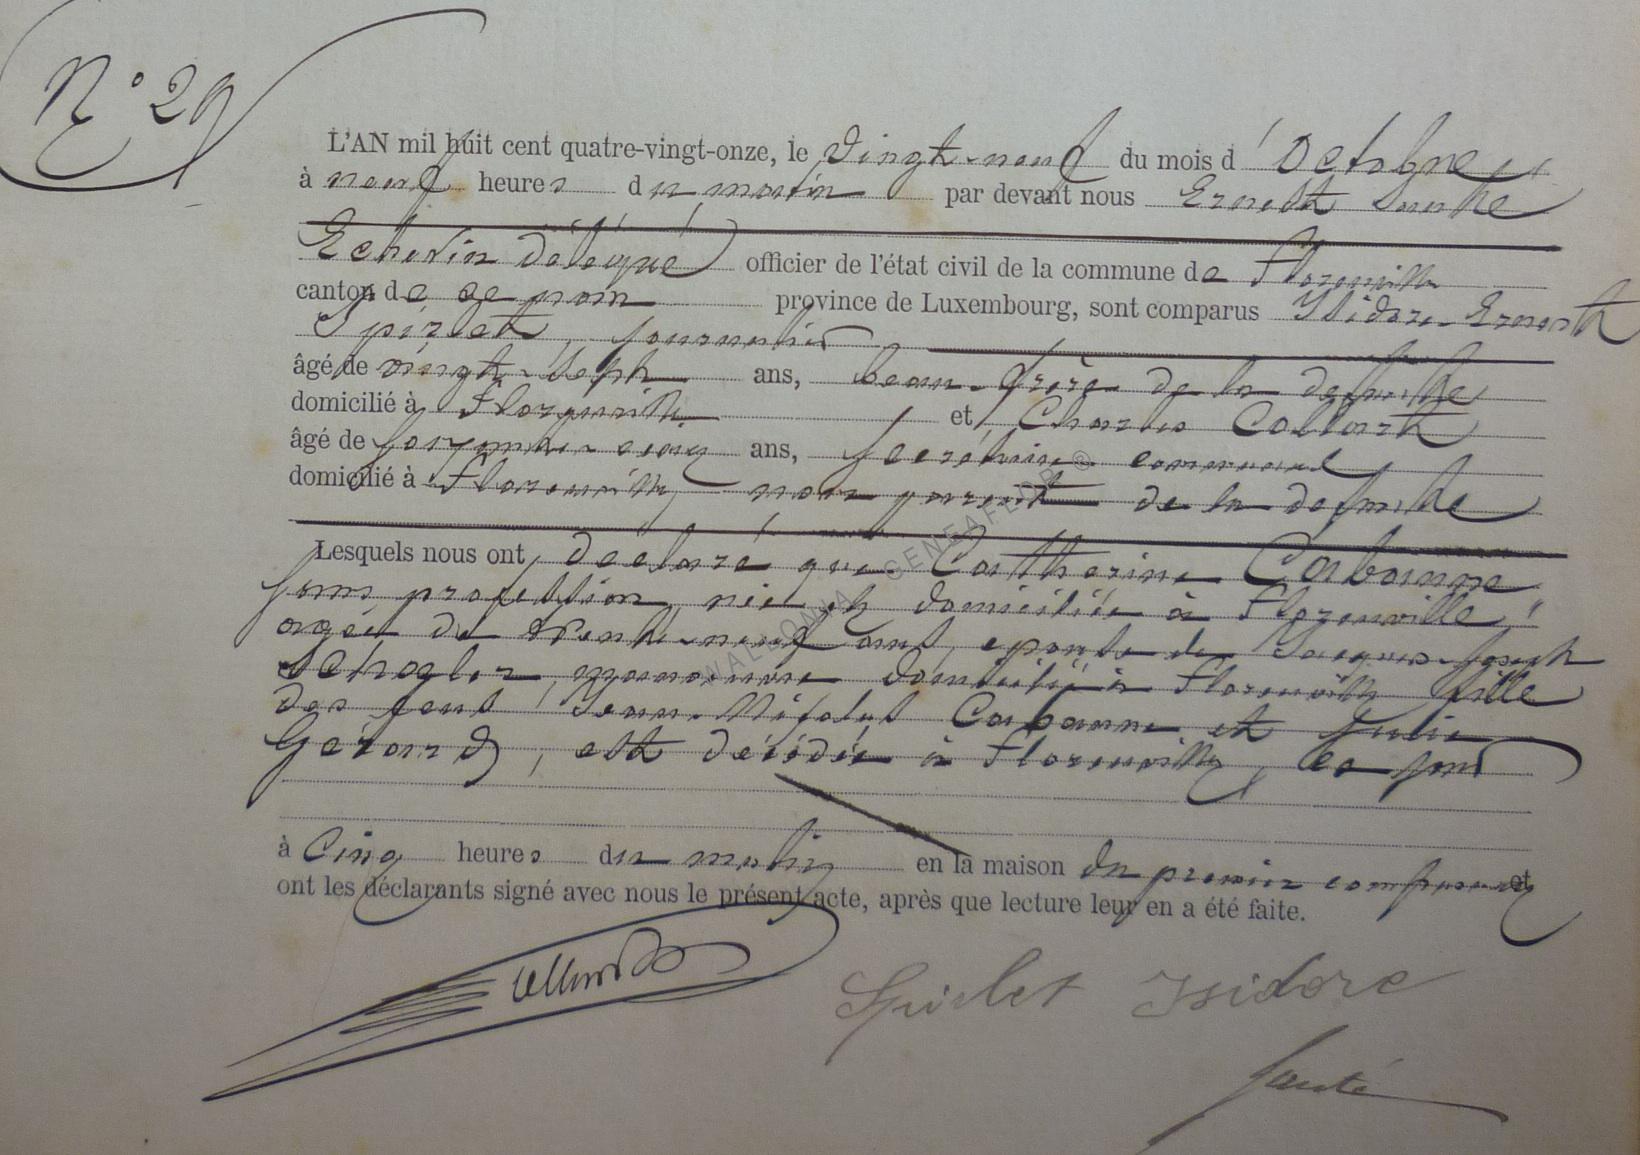 N° 29
L'AN mil huit cent quatre-vingt-onze, le vingt-neuf du mois d'Octobre
à neuf heures du matin par devant nous Ernest
Echevin délégué officier de l'état civil de la commune de Florenville
canton de ce nom province de Luxembourg, sont comparus Isidore-Ernest
Spirlet, journalier
âgé de vingt-sept ans, beau-frère de la defunte
domicilié à Florenville et Charles Collard
âgé de soixante-cinq ans, secrétaire communal
domicilié à Florenville, non parent de la defunte
Lesquels nous ont déclaré que Catherine Carbonne
sans profession, née et domiciliée à Florenville,
agée de trente-neuf ans, épouse de Jacques-Joseph
domicilié à Florenville fille
des feus Jean-Nicolas Carbonne et Julie
Gérard, est décédée à Florenville, ce jour
à Cinq heures du matin en la maison du premier comparant et
ont les déclarants signé avec nous le présent acte, après que lecture leur en a été faite.
Spirlet Isidore
WALLONIA GENEAFEDE ®